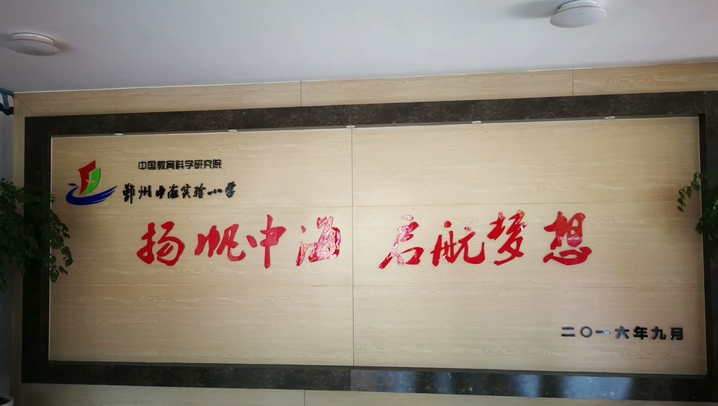 中国教育科学研究院
鄞州中海实验小学
扬帆中海 启航梦想
二〇一六年九月